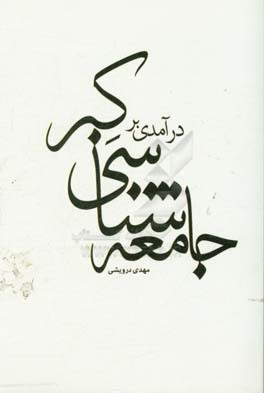 درآمدی بر
جامعه شناسی کبر
مهدی درویشی